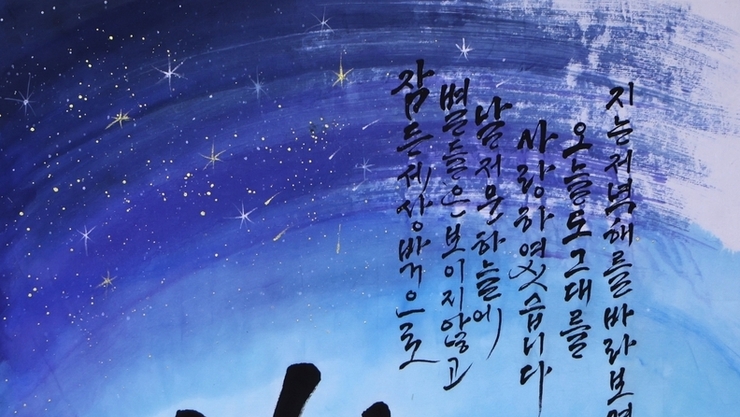 지는 저녁해를 바라보며
오늘도 그대를
사랑하였습니다
날 저문 하늘에
별들은 보이지 않고
잠든 세상 밖으로